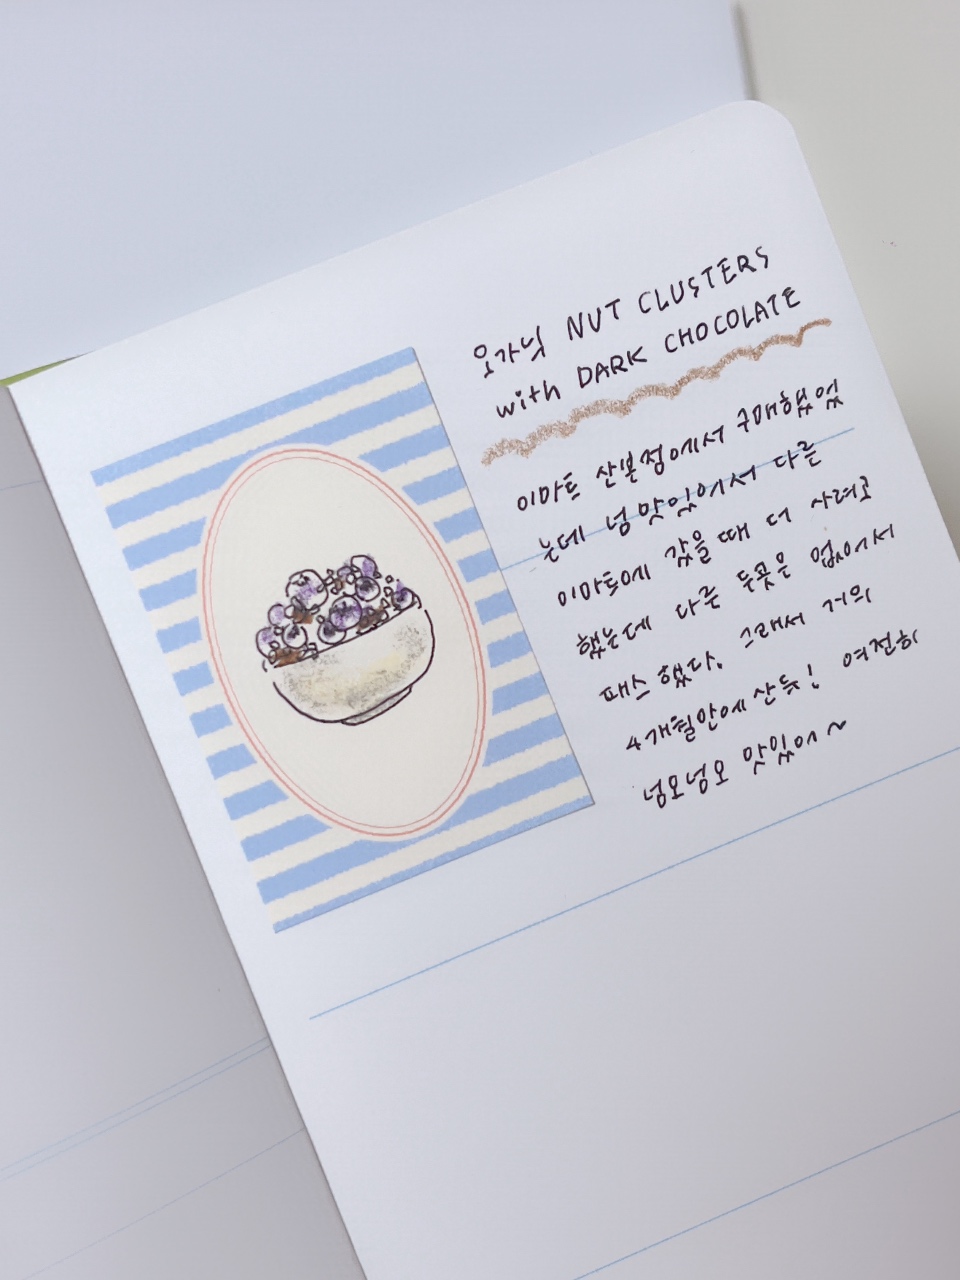 오가닉 NUT CLUSTERS
with DARK CHOCOLATE
이마트 산본점에서 구매했었
는데 넘 맛있어서 다른
이마트에 갔을 때 더 사려고
했는데 다른 곳은 없어서
패스했다. 그래서 거의
4개월만에 산듯! 여전히
넘오넘오 맛있어~